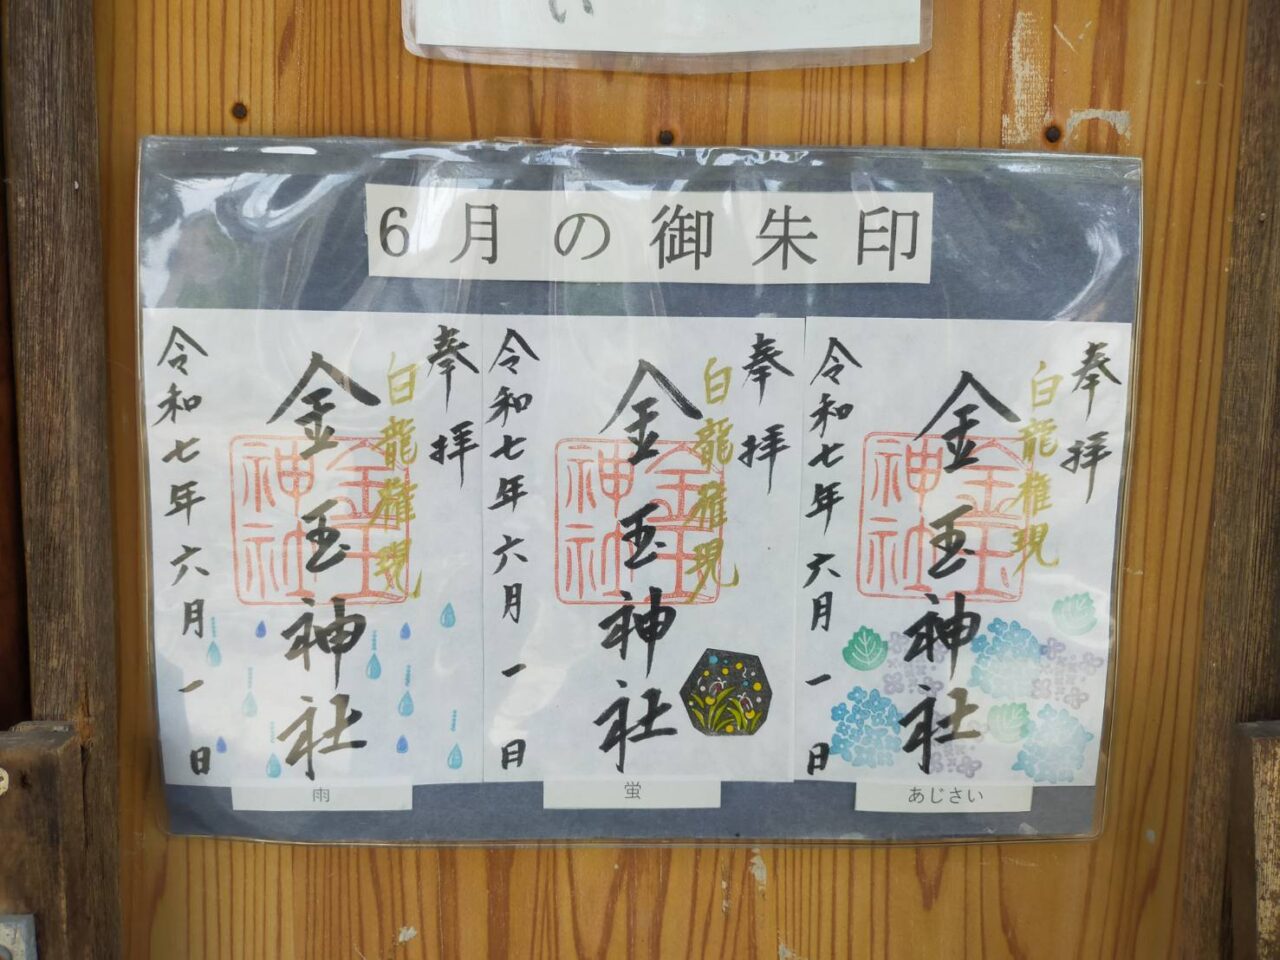 い
6月の御朱印
奉拝
白龍権現
金玉神社
金玉神社
令和七年六月一日
雨
奉拝
白龍権現
金玉神社
金玉神社
令和七年六月一日
蛍
奉拝
白龍権現
金玉神社
金玉神社
令和七年六月一日
あじさい